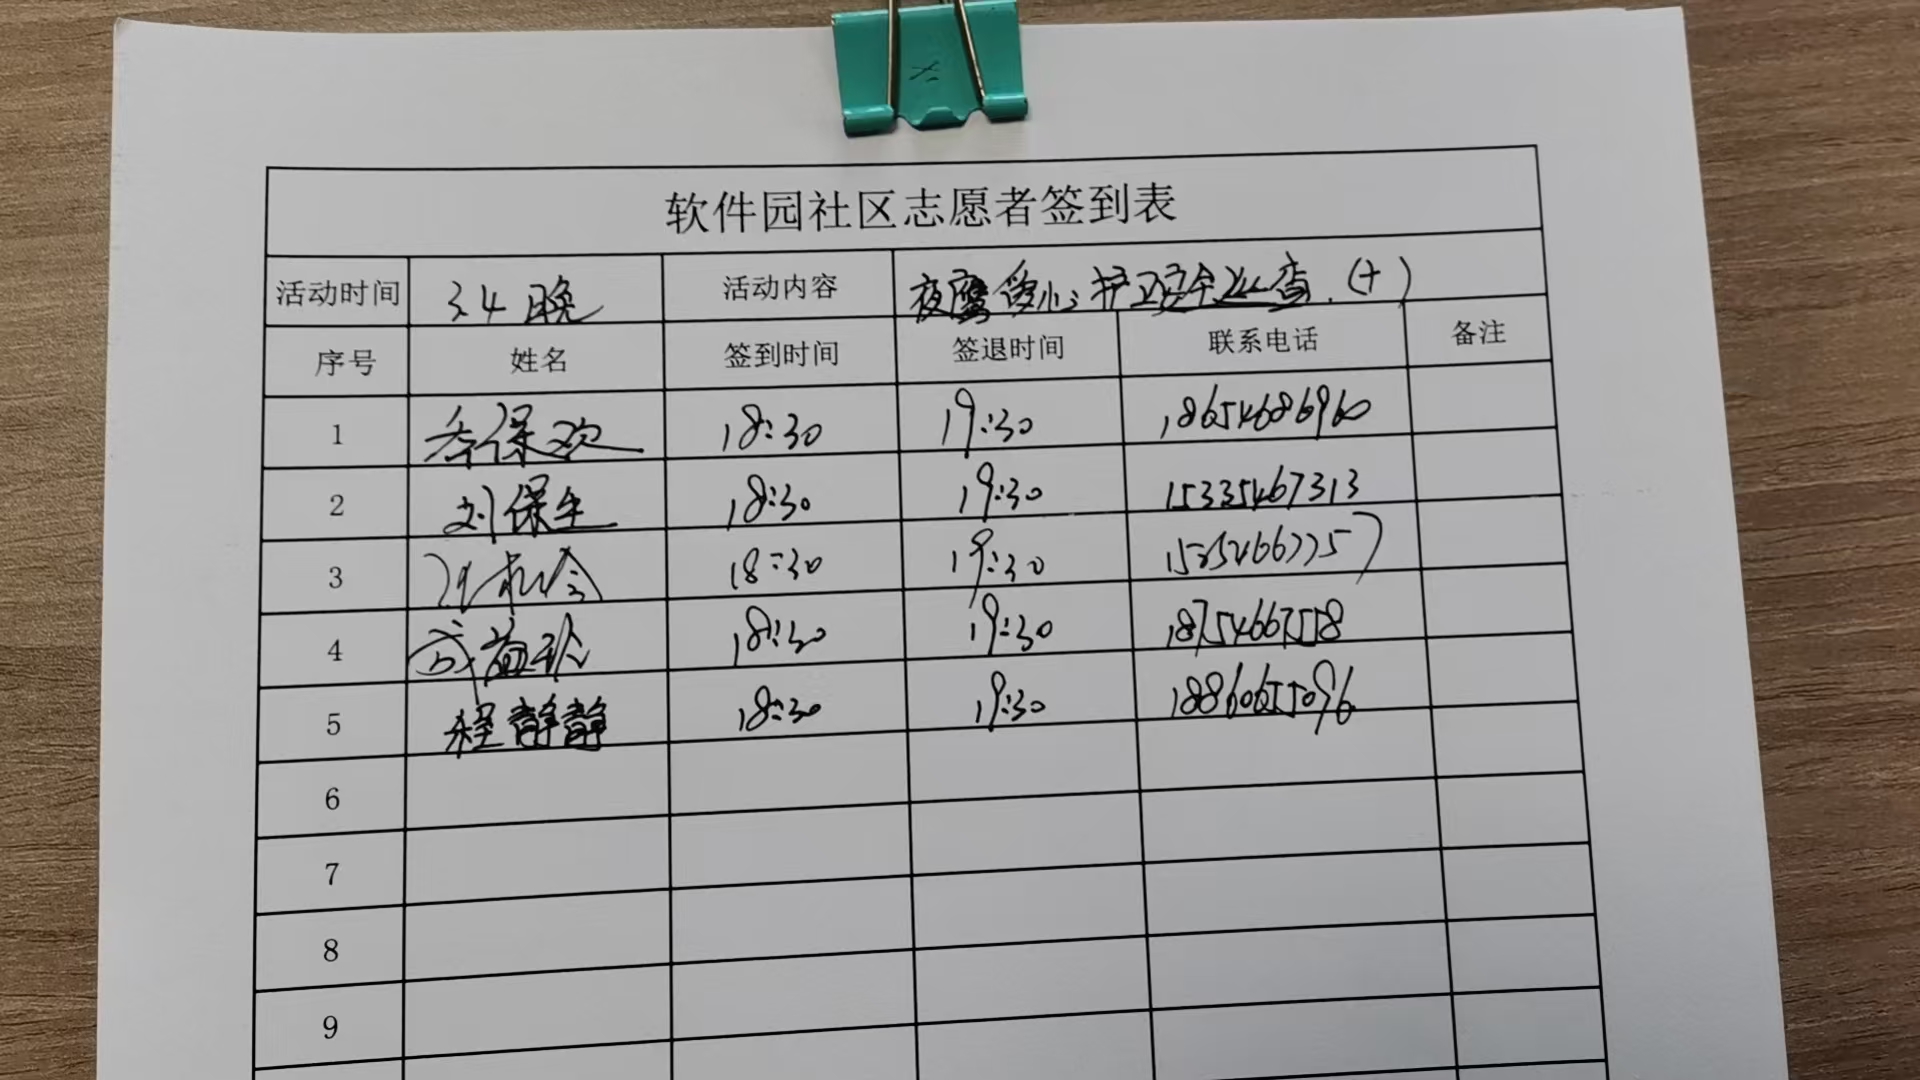 软件园社区志愿者签到表
活动时间 3.4 晚 活动内容 夜鹰 护卫安全 查.(十)
序号 姓名 签到时间 签退时间 联系电话 备注
1 李保欢 18:30 19:30 18654686960
2 刘保生 18:30 19:30 15335467313
3 18:30 19:30
4 18:30 19:30 18754667558
5 程静静 18:30 19:30 18860655096
6
7
8
9